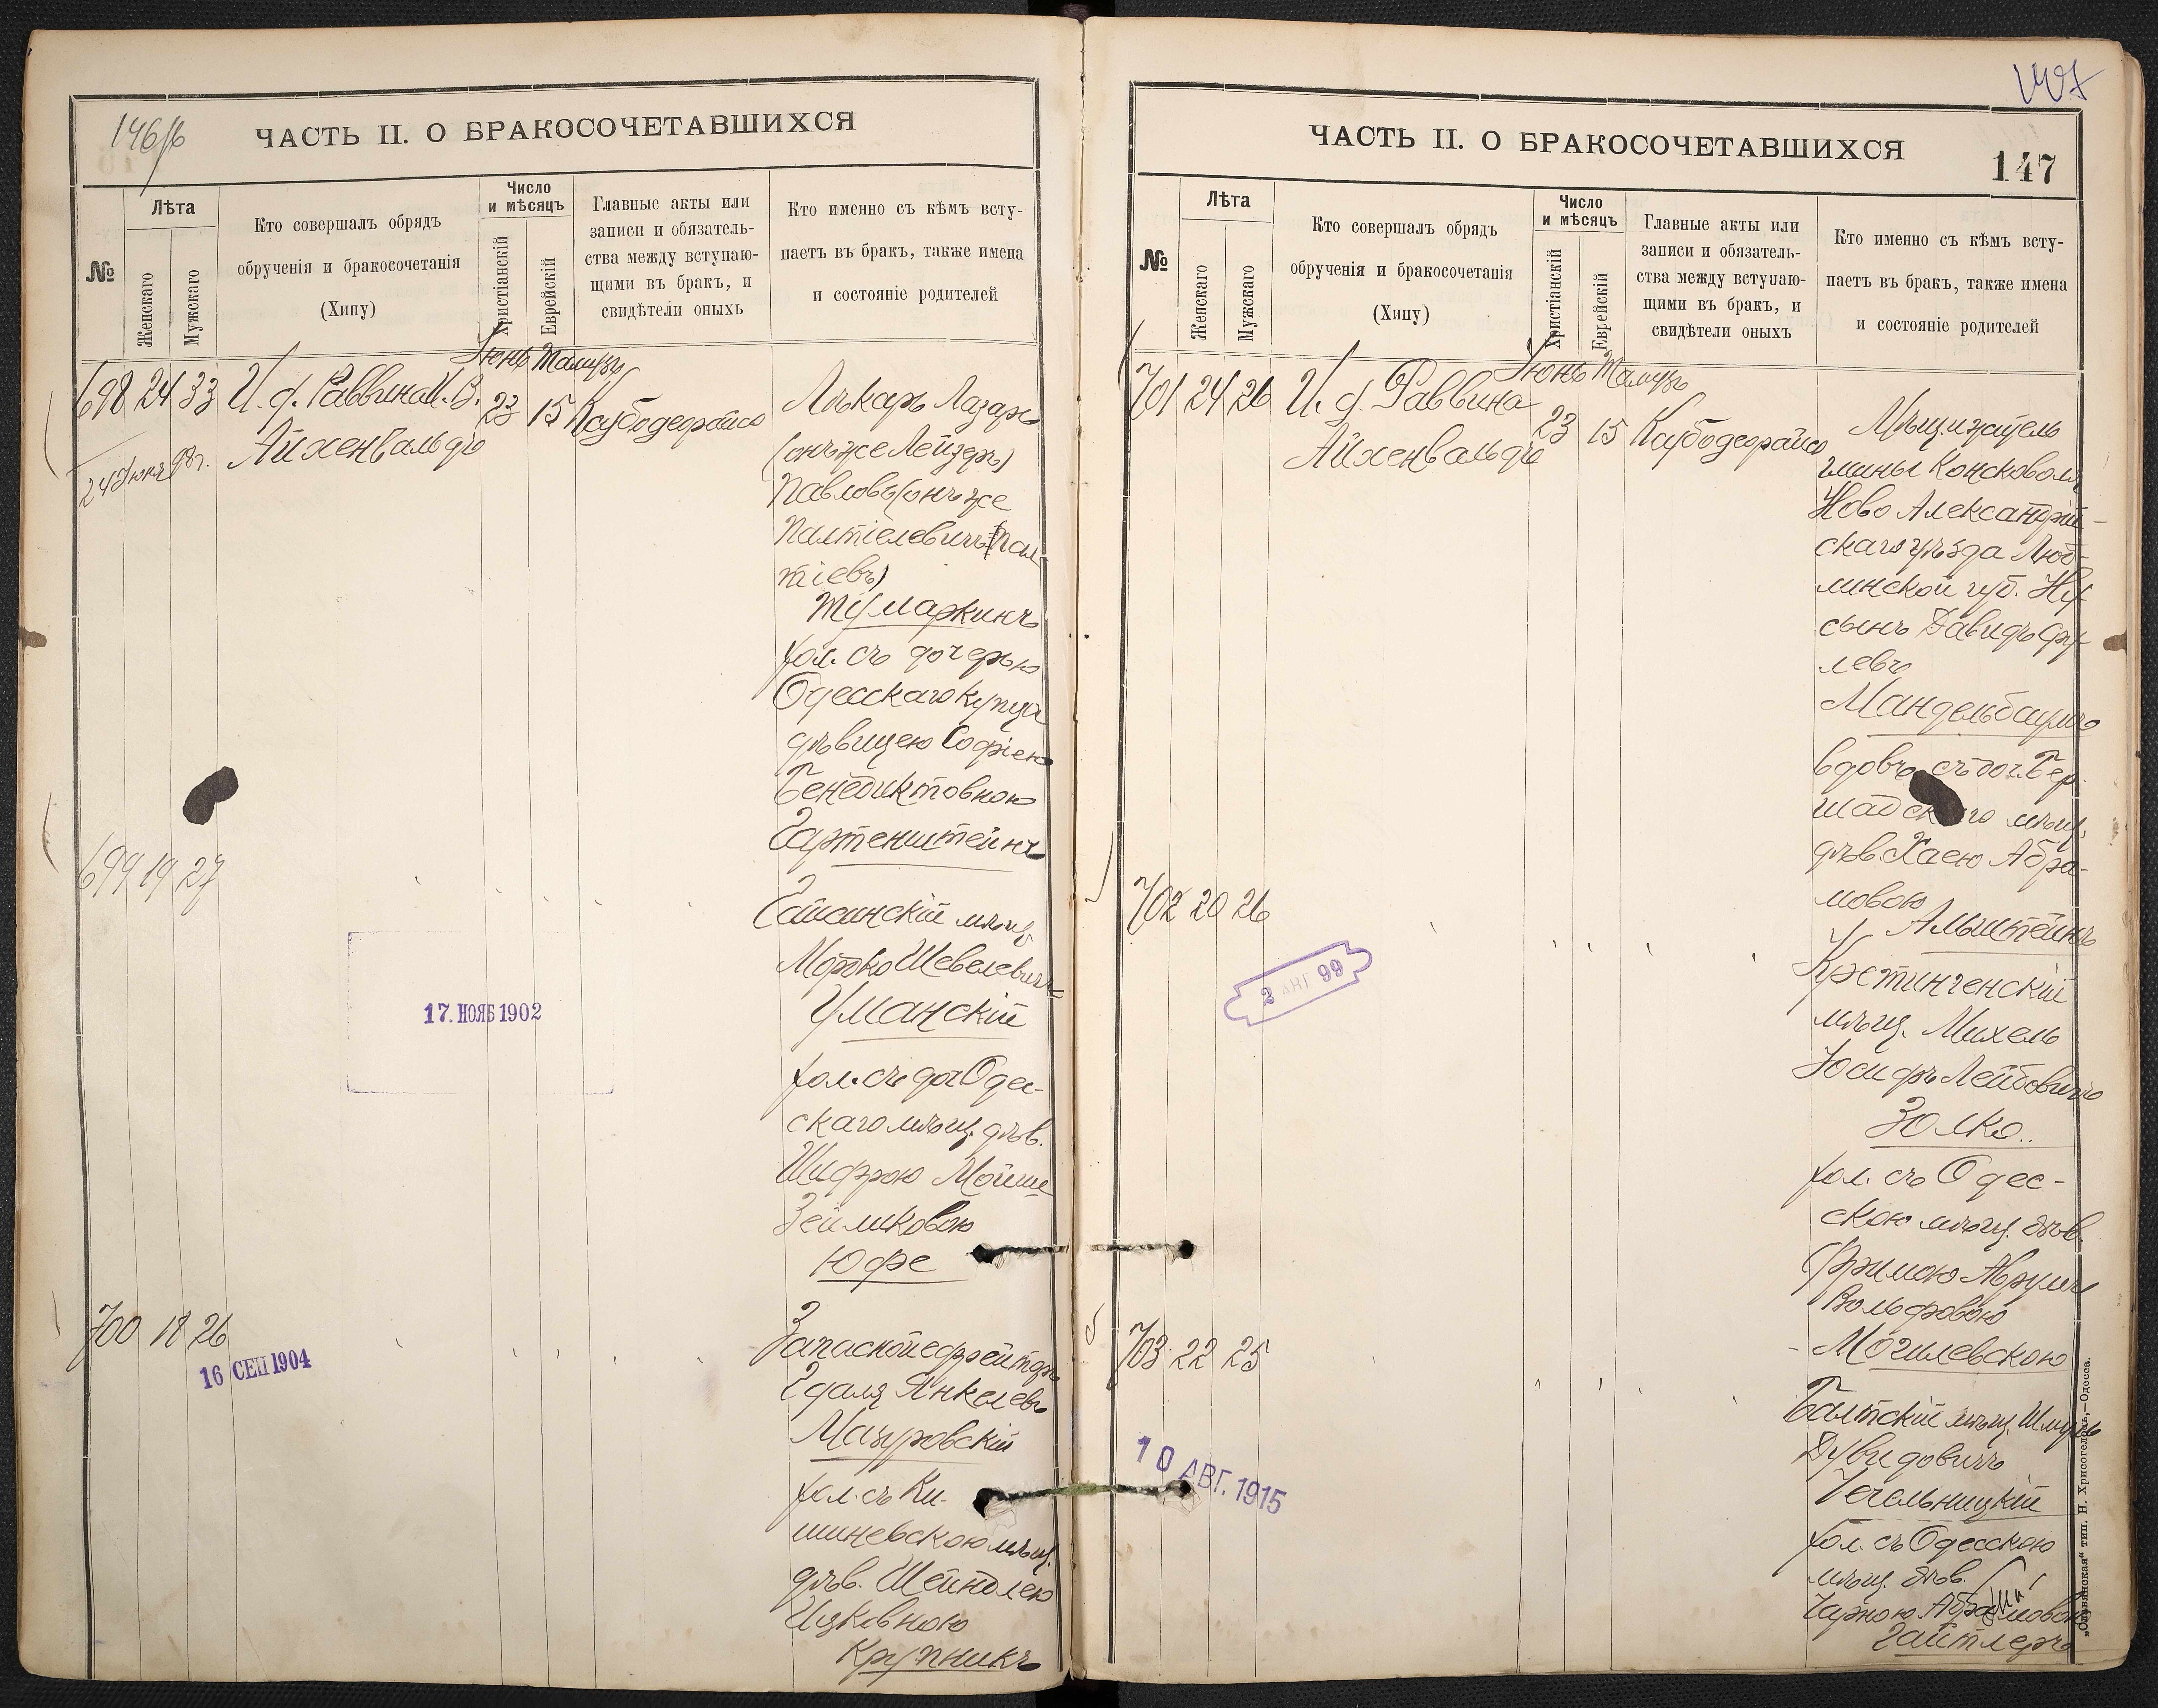 146/б
ЧАСТЬ II. О БРАКОСОЧЕТАВШИХСЯ
№
Лѣта
Женскаго
Мужскаго
Кто совершалъ обрядъ
обрученія и бракосочетанія
(Хипу)
Число
и мѣсяцъ
Христіанскій
Еврейскій
Главные акты или
записи и обязатель-
ства между вступаю-
щими въ бракъ, и
свидѣтели оныхъ
Кто именно съ кѣмъ всту-
паетъ въ бракъ, также имена
и состояніе родителей
Іюнь Тамузъ
698 24 33 И. д. Раввина
Айхенвальдъ
23 15
24 Іюня 98 г.
Лѣкарь Лазарь
(онъ же Лейзеръ)
Павловъ (онъ же
Палтіелевичъ Пал-
тіевъ)
Тумаркинъ
хол. съ дочерью
Одесскаго купца
дѣвицею Софіею
Бенедиктовною
Гартенштейнъ
699 19 27
мѣщ.
Мошко Шевелевичъ
Уманскій
хол. съ доч Одес-
скаго мѣщ. дѣв.
Шифрою Мойше
Зейликовою
Юфе
17. НОЯБ 1902
700 18 26
16 СЕП 1904
Запасной ефрейторъ
Гдаля Янкелевъ
Мазуровскій
хол. съ Ки-
шиневскою мѣщ.
дѣв. Шейндлею
Ицковною
Крупникъ
147
ЧАСТЬ II. О БРАКОСОЧЕТАВШИХСЯ
147
№
Лѣта
Женскаго
Мужскаго
Кто совершалъ обрядъ
обрученія и бракосочетанія
(Хипу)
Число
и мѣсяцъ
Христіанскій
Еврейскій
Главные акты или
записи и обязатель-
ства между вступаю-
щими въ бракъ, и
свидѣтели оныхъ
Кто именно съ кѣмъ всту-
паетъ въ бракъ, также имена
и состояніе родителей
Іюнь Тамузъ
701 24 26 И. д. Раввина
Айхенвальдъ
23 15
житель
гмины Консковоля
Ново Александрій-
скаго уѣзда Люб-
линской губ. Ну-
сынъ Давидъ Сру-
левъ
Мандельбаумъ
вдовъ съ доч. Бер-
шадскаго мѣщ.
дѣв. Хаею Абра-
мовою
702 20 26
2 АВГ 99
Кретингенскій
мѣщ. Михель
Іосифъ Лейбовичъ
Золко
хол. съ Одес-
скою мѣщ. дѣв.
Фримою Аврумъ
Вольфовою
Могилевскою
703 22 25
10 АВГ. 1915
Балтскій мѣщ. Шмуль
Дувидовичъ
Чечельницкій
хол. съ Одесскою
мѣщ. дѣв.
Чарною Абрамовою
Гайтлеръ
„Славянская“ тип. Н. Хрисогелосъ,—Одесса.